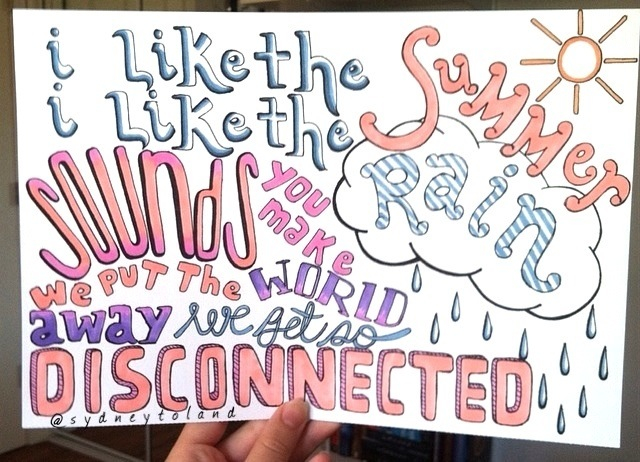 i Like the Summer
i Like the Rain
Sounds you make
we PUT The WORlD
away we get so
DISCONNECTED
@sydneytoland